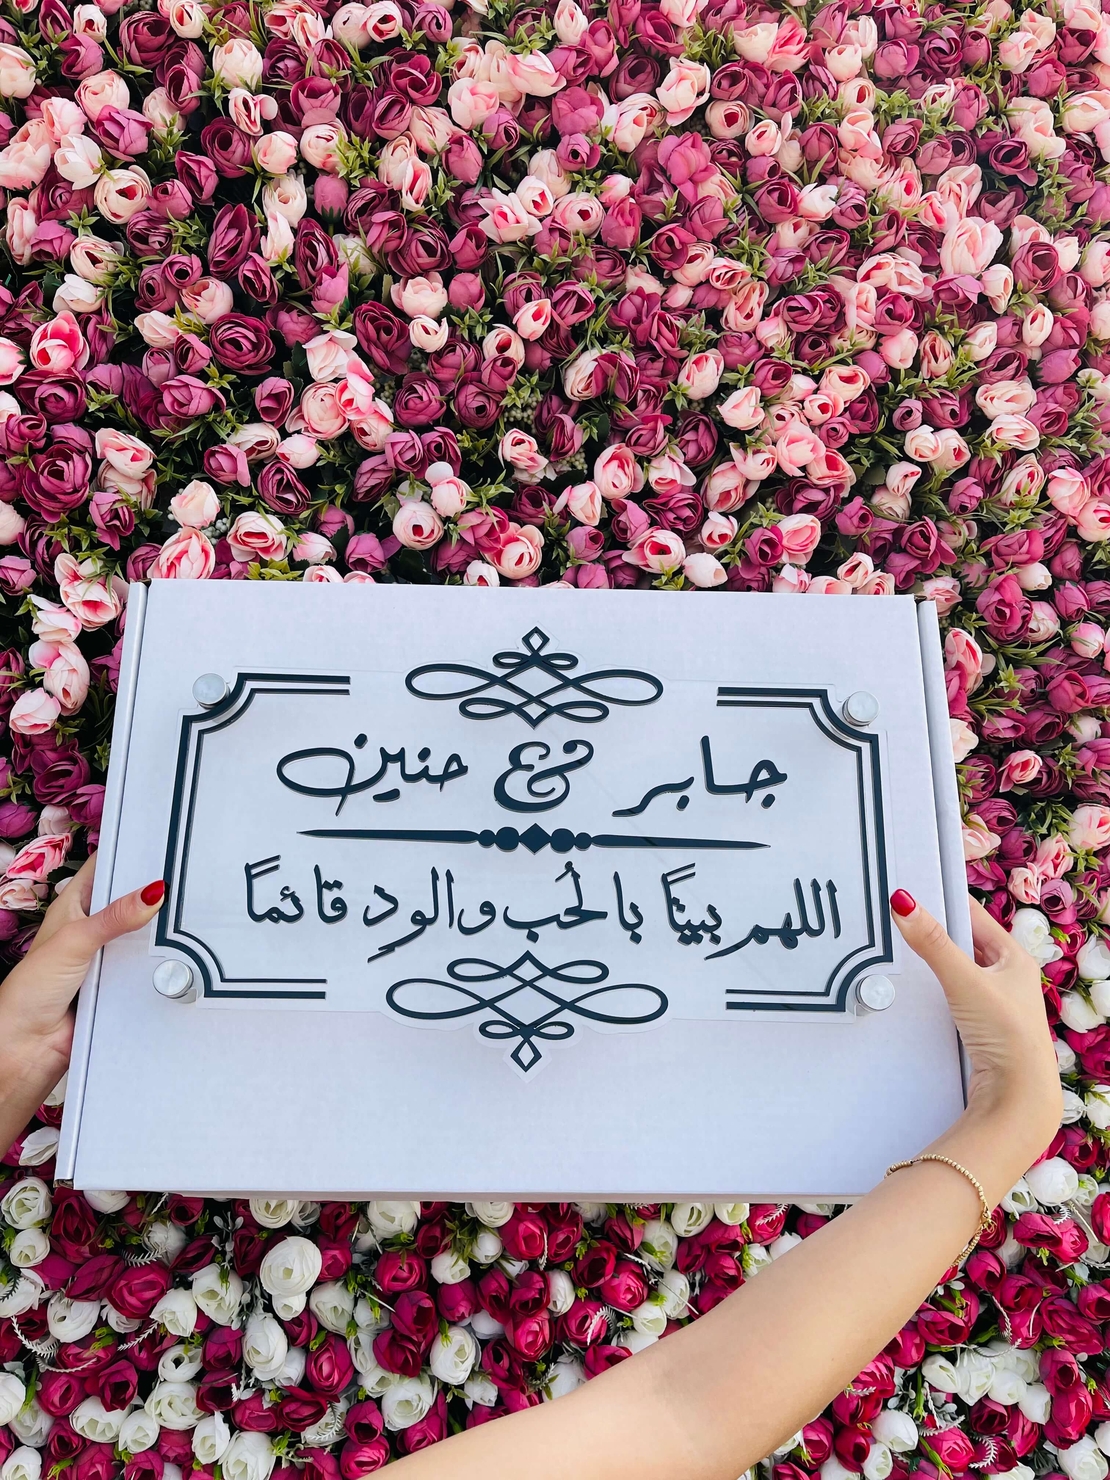 جابر & حنين
اللهم بيتًا بالحُب والودِ قائمًا